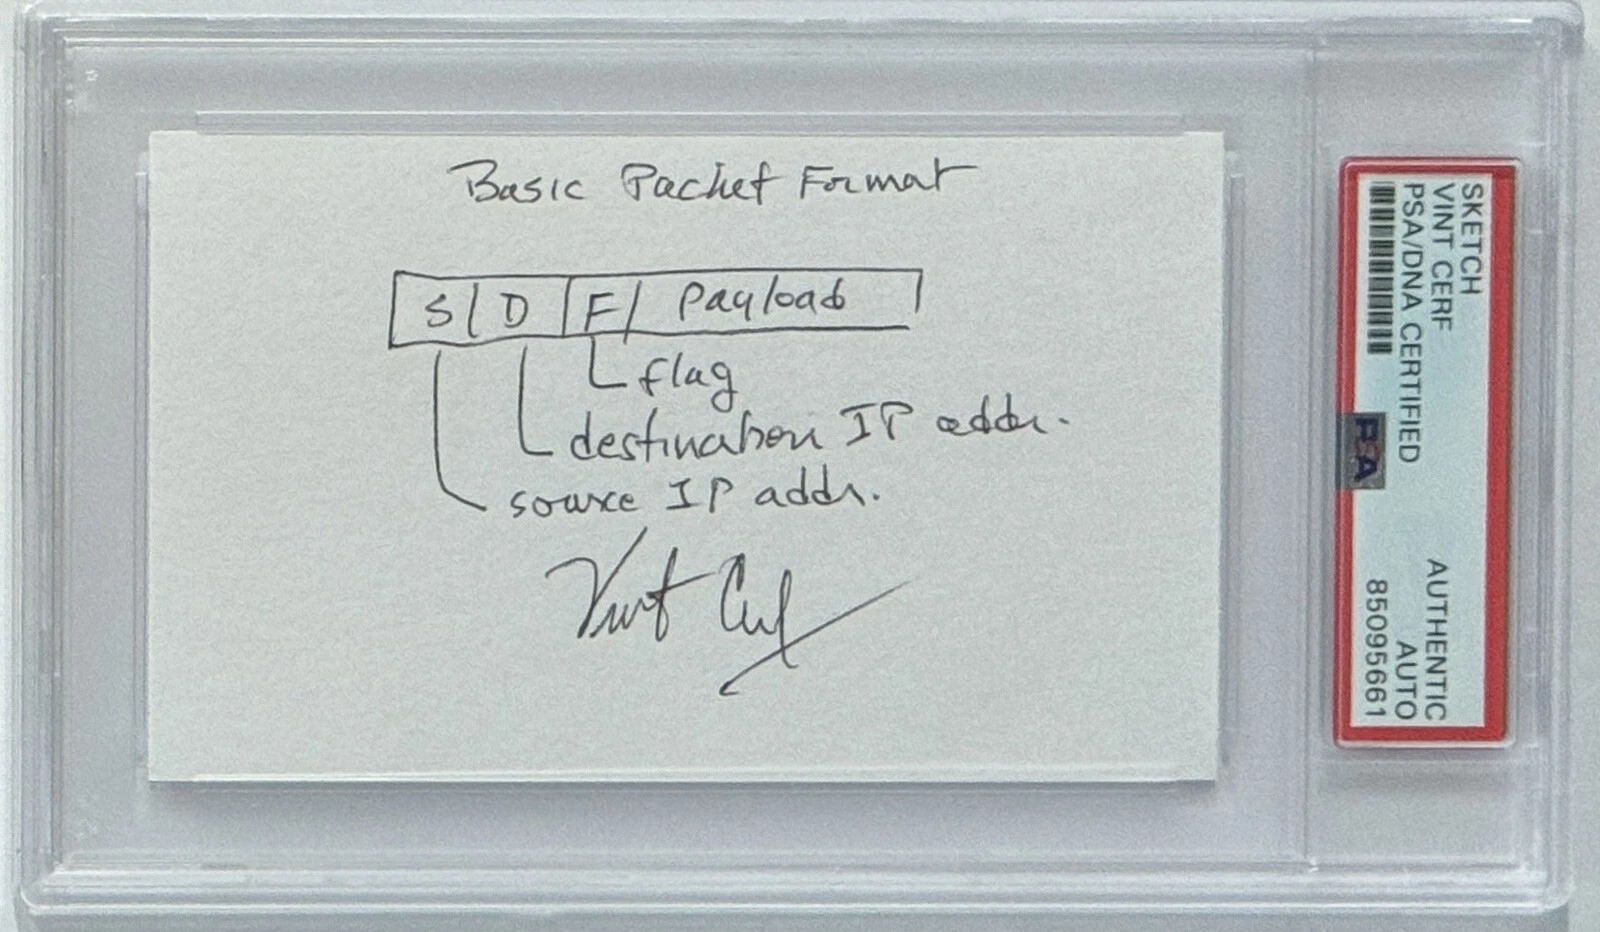 Basic Packet Format
S D F Payload
flag
destination IP addr.
source IP addr.
Vint Cerf
SKETCH
VINT CERF
PSA/DNA CERTIFIED
PSA
AUTHENTIC
AUTO
85095661